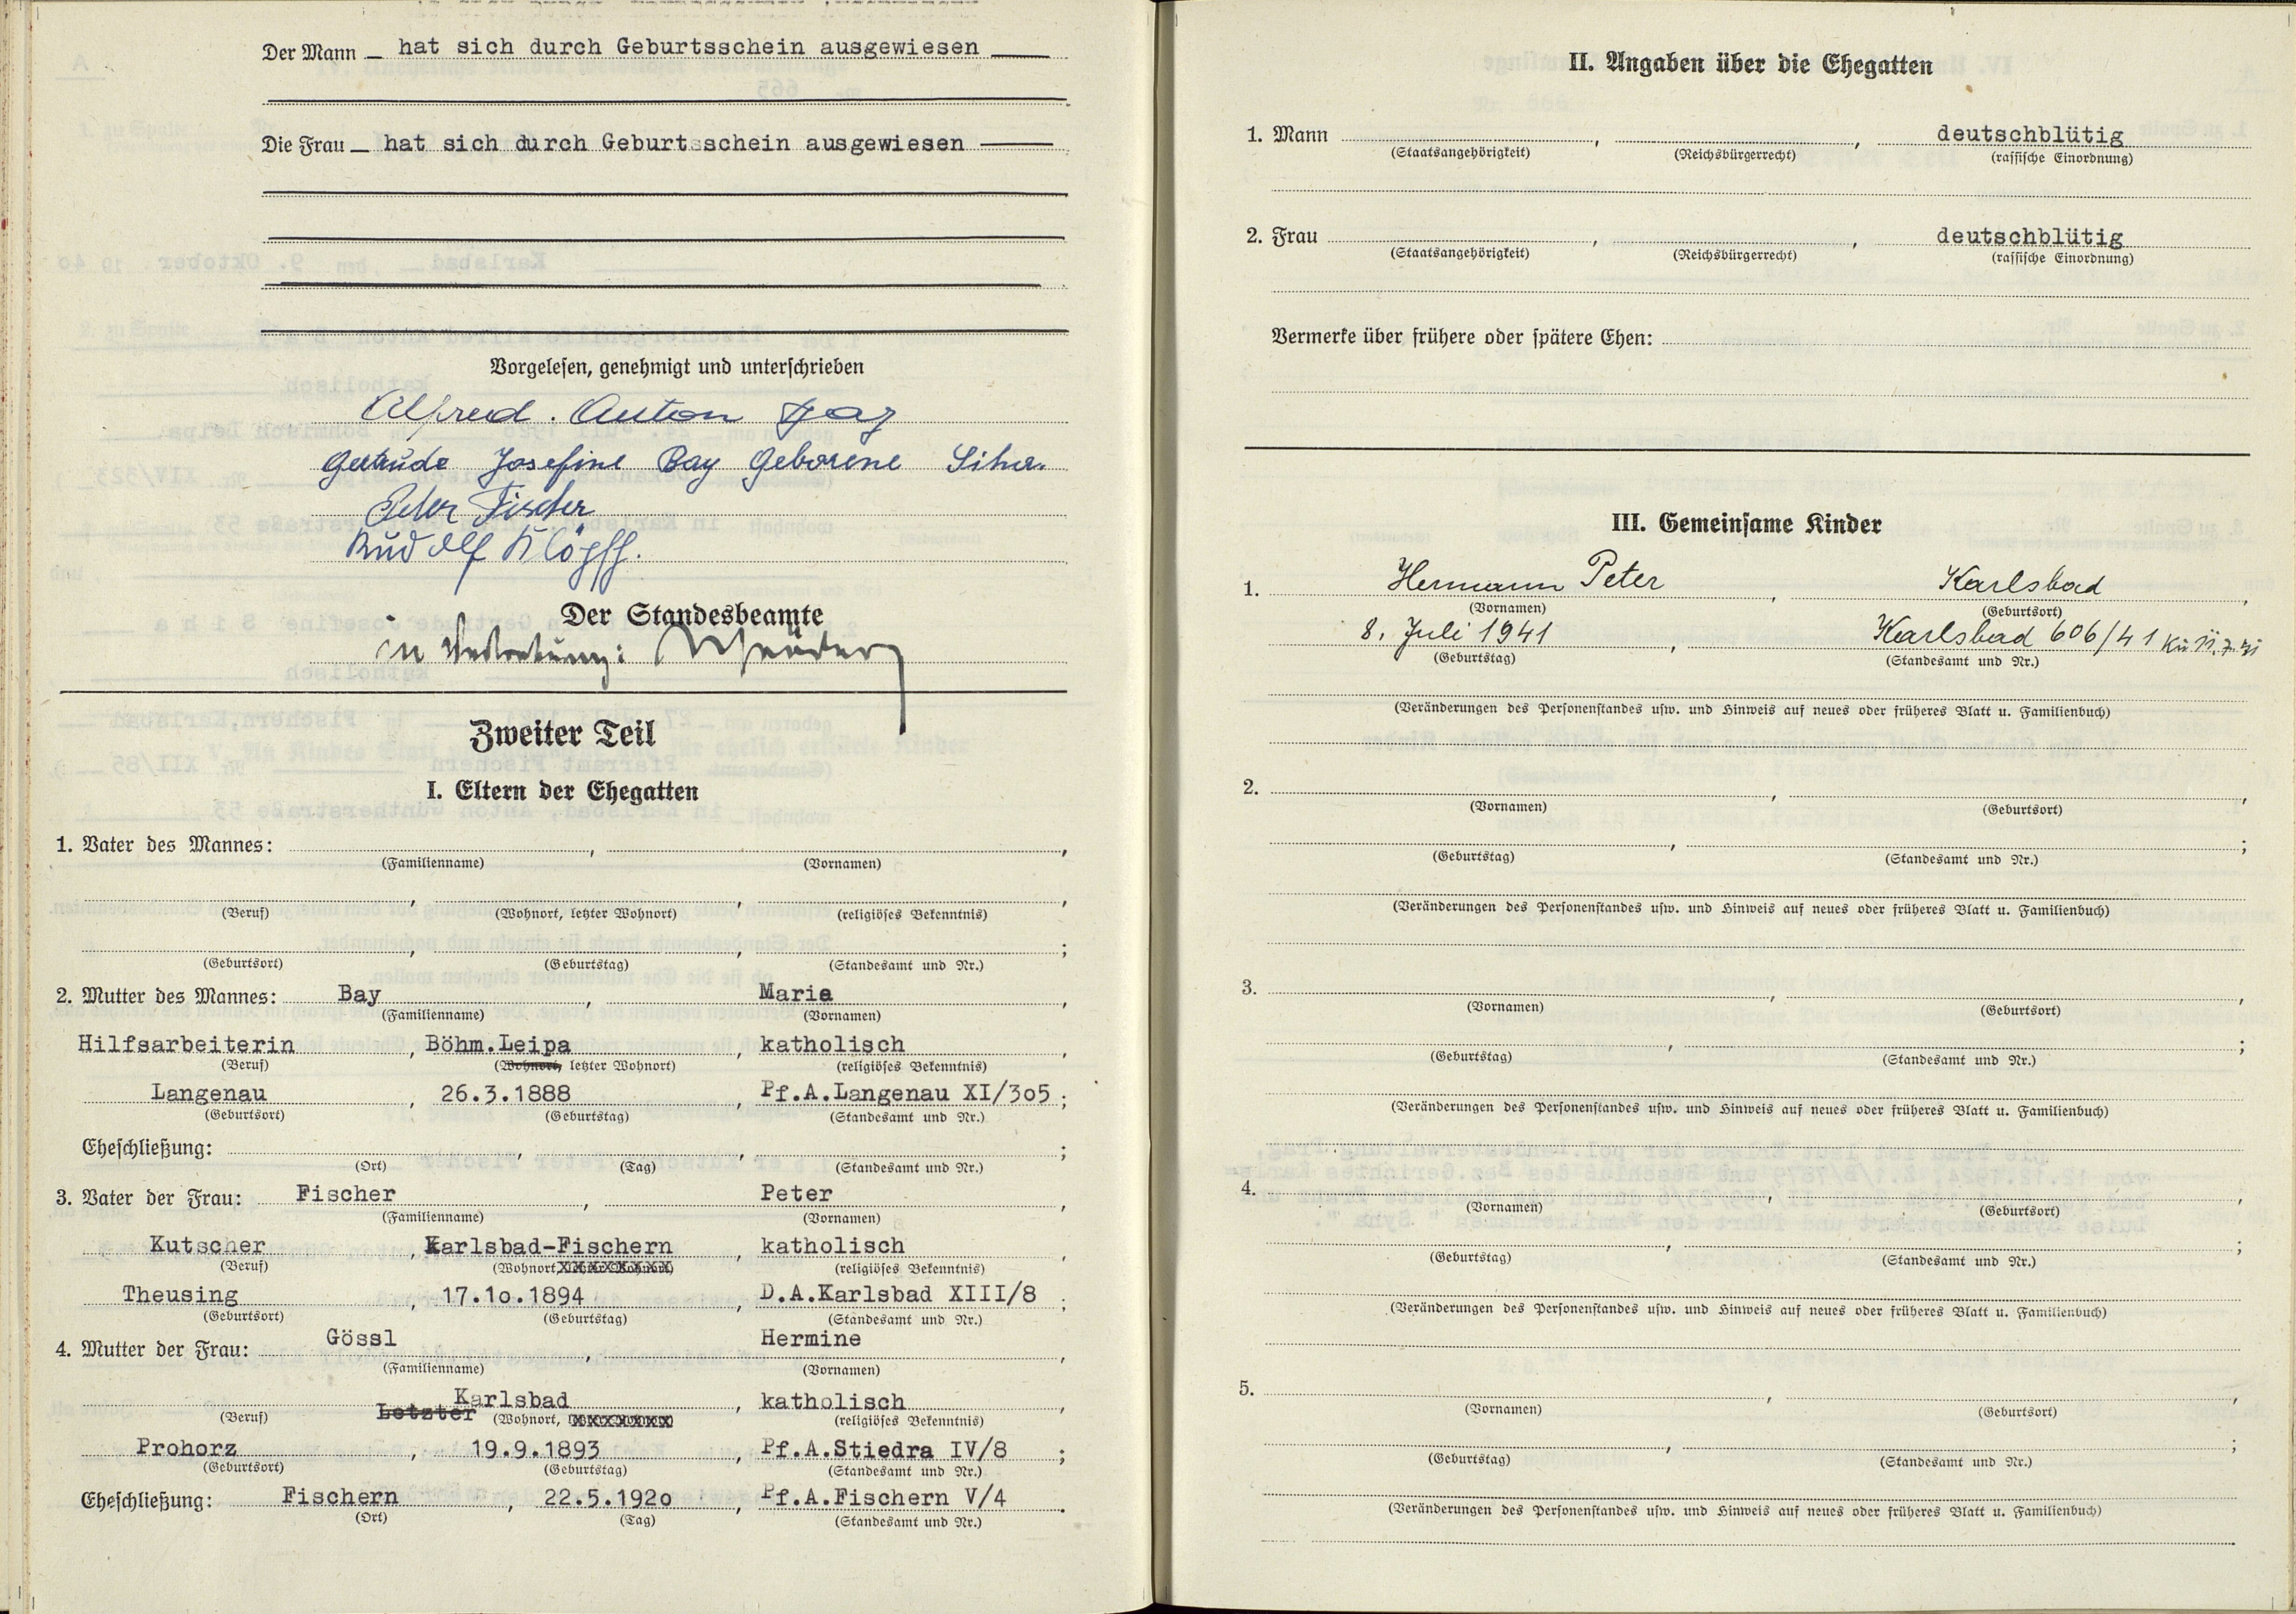 Der Mann hat sich durch Geburtsschein ausgewiesen
Die Frau hat sich durch Geburtsschein ausgewiesen
Vorgelesen, genehmigt und unterschrieben
Alfred Anton Bay
Gertrude Josefine Bay Geborene Siha.
Peter Fischer
Rudolf
Der Standesbeamte
in Vertretung:
Zweiter Teil
I. Eltern der Ehegatten
1. Vater des Mannes: , ,
(Familienname) (Vornamen)
, , ,
(Beruf) (Wohnort, letzter Wohnort) (religiöses Bekenntnis)
, , ;
(Geburtsort) (Geburtstag) (Standesamt und Nr.)
2. Mutter des Mannes: Bay , Marie ,
(Familienname) (Vornamen)
Hilfsarbeiterin , Böhm.Leipa , katholisch ,
(Beruf) (Wohnort, letzter Wohnort) (religiöses Bekenntnis)
Langenau , 26.3.1888 , Pf.A.Langenau XI/3o5 ;
(Geburtsort) (Geburtstag) (Standesamt und Nr.)
Eheschließung: , , ;
(Ort) (Tag) (Standesamt und Nr.)
3. Vater der Frau: Fischer , Peter ,
(Familienname) (Vornamen)
Kutscher , Karlsbad-Fischern , katholisch ,
(Beruf) (Wohnort, letzter Wohnort) (religiöses Bekenntnis)
Theusing , 17.1o.1894 , D.A.Karlsbad XIII/8 ;
(Geburtsort) (Geburtstag) (Standesamt und Nr.)
4. Mutter der Frau: Gössl , Hermine ,
(Familienname) (Vornamen)
Karlsbad , katholisch ,
(Beruf) Letzter (Wohnort, letzter Wohnort) (religiöses Bekenntnis)
Prohorz , 19.9.1893 , Pf.A.Stiedra IV/8 ;
(Geburtsort) (Geburtstag) (Standesamt und Nr.)
Eheschließung: Fischern , 22.5.192o , Pf.A.Fischern V/4 .
(Ort) (Tag) (Standesamt und Nr.)
II. Angaben über die Ehegatten
1. Mann , , deutschblütig
(Staatsangehörigkeit) (Reichsbürgerrecht) (rassische Einordnung)
2. Frau , , deutschblütig
(Staatsangehörigkeit) (Reichsbürgerrecht) (rassische Einordnung)
Vermerke über frühere oder spätere Ehen:
III. Gemeinsame Kinder
1. Hermann Peter , Karlsbad ,
(Vornamen) (Geburtsort)
8. Juli 1941 , Karlsbad 606/41
(Geburtstag) (Standesamt und Nr.)
(Veränderungen des Personenstandes usw. und Hinweis auf neues oder früheres Blatt u. Familienbuch)
2. , ,
(Vornamen) (Geburtsort)
, ;
(Geburtstag) (Standesamt und Nr.)
(Veränderungen des Personenstandes usw. und Hinweis auf neues oder früheres Blatt u. Familienbuch)
3. , ,
(Vornamen) (Geburtsort)
, ;
(Geburtstag) (Standesamt und Nr.)
(Veränderungen des Personenstandes usw. und Hinweis auf neues oder früheres Blatt u. Familienbuch)
4. , ,
(Vornamen) (Geburtsort)
, ;
(Geburtstag) (Standesamt und Nr.)
(Veränderungen des Personenstandes usw. und Hinweis auf neues oder früheres Blatt u. Familienbuch)
5. , ,
(Vornamen) (Geburtsort)
, ;
(Geburtstag) (Standesamt und Nr.)
(Veränderungen des Personenstandes usw. und Hinweis auf neues oder früheres Blatt u. Familienbuch)